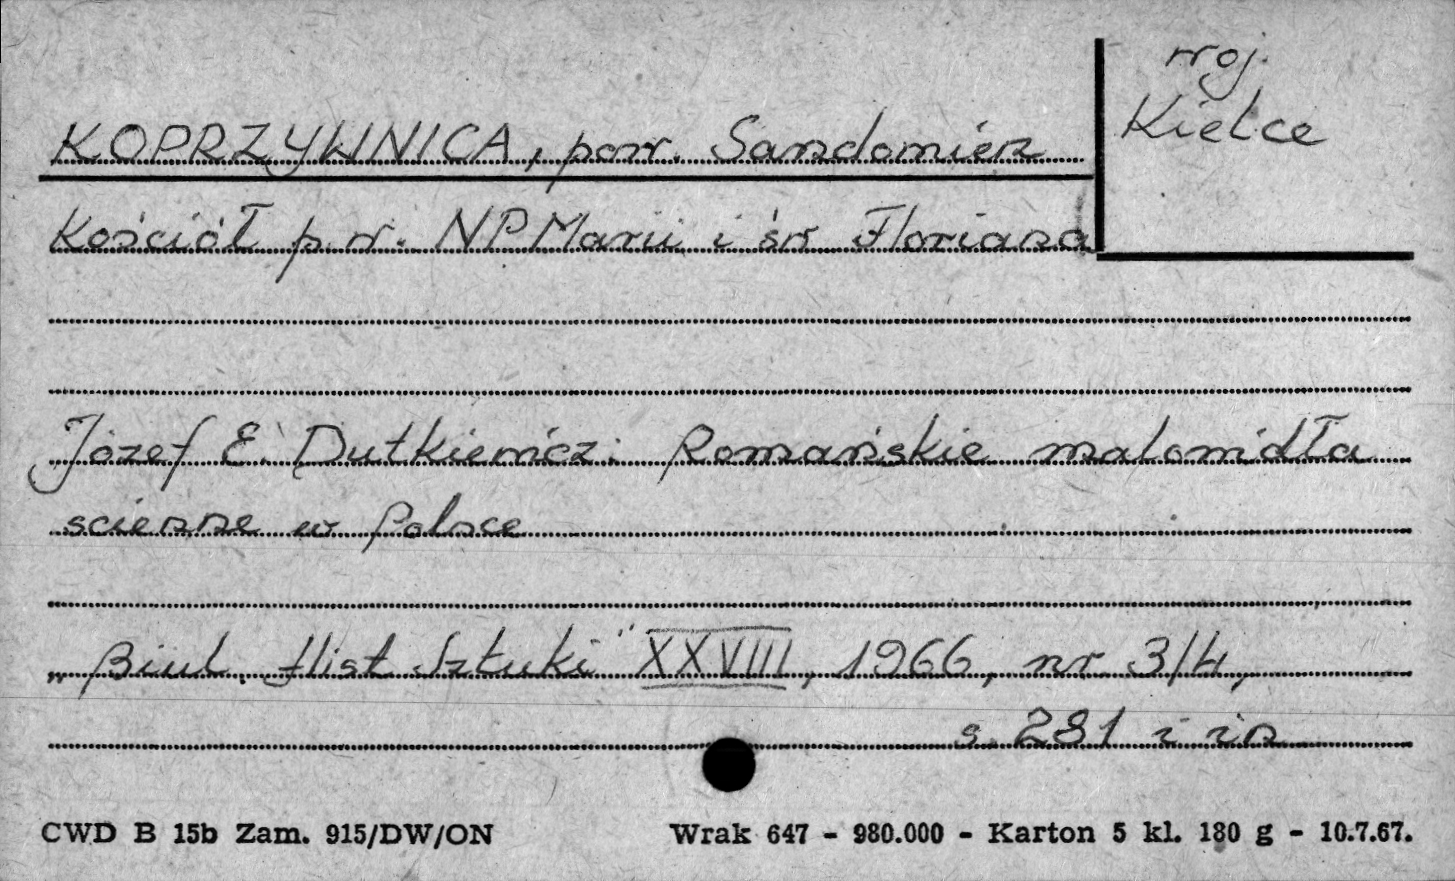 woj.
Kielce
KOPRZYWNICA, pow. Sandomierz
Kościół p.w. NPMarii i św Floriana
Józef E. Dutkiewicz: Romańskie malowidła
scienne w Polsce
„Biul. Hist Sztuki" XXVIII, 1966, nr 3/4,
s. 281 i in
CWD B 15b Zam. 915/DW/ON Wrak 647 - 980.000 - Karton 5 kl. 180 g - 10.7.67.